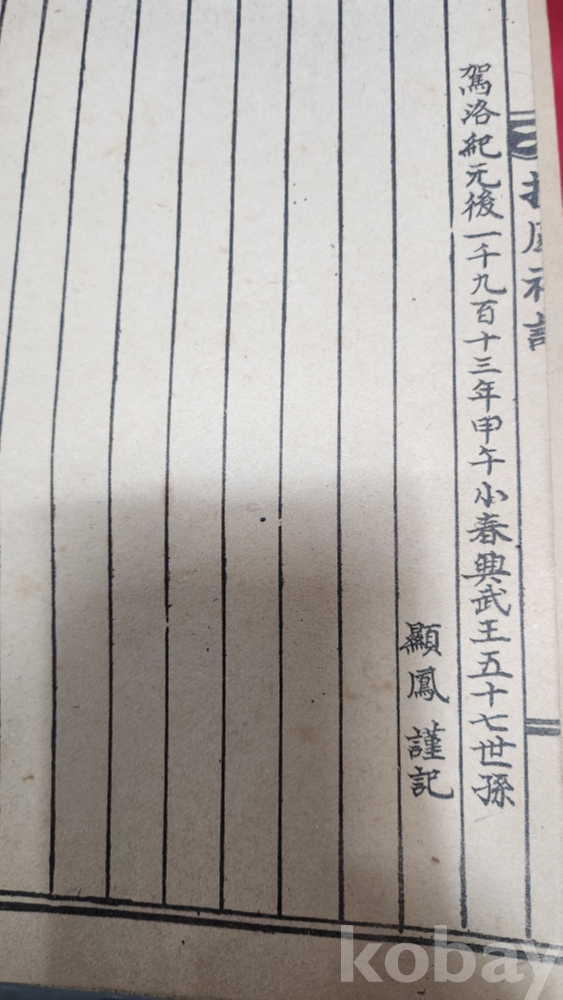 駕洛紀元後一千九百十三年甲午小春興武王五十七世孫
顯鳳 謹記
kobay